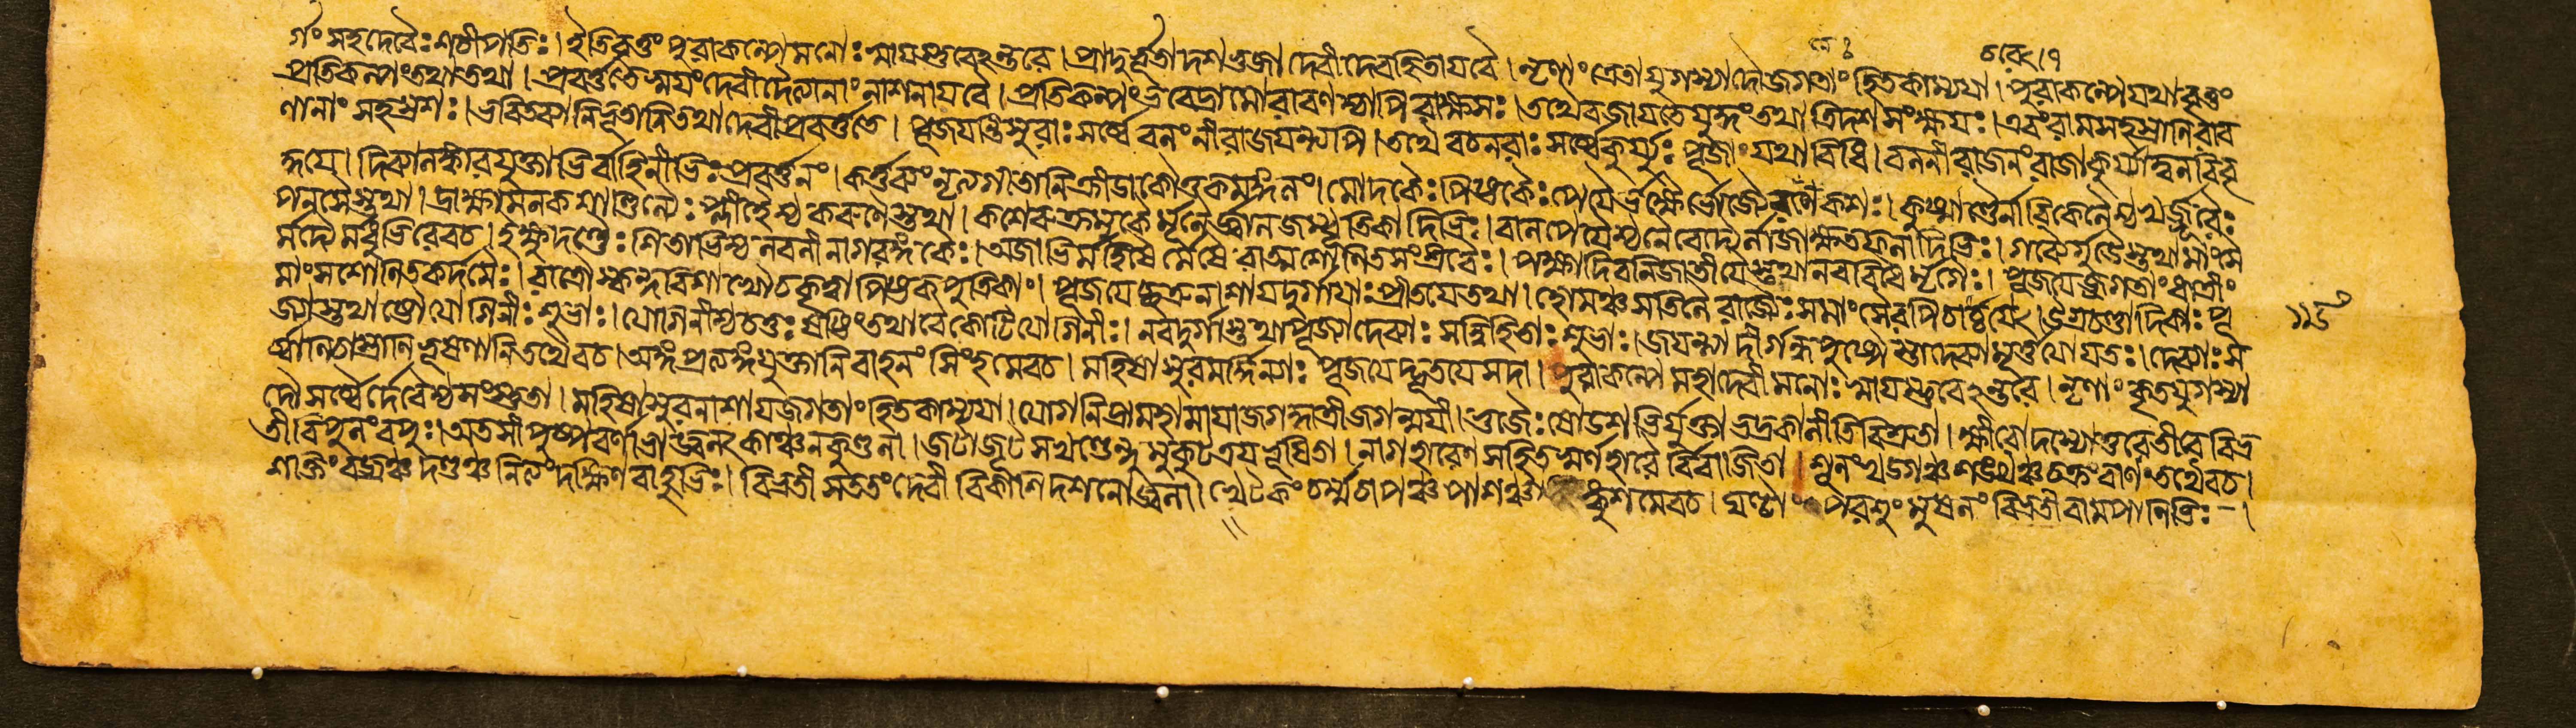 র্গং সহ দেবৈঃ শচীপতিঃ। ইতিবৃত্তং পুরাকল্পে মনোঃ স্বায়ম্ভুবেঽন্তরে। প্রাদুর্ভূতা দশভুজা দেবী দেবহিতায় বৈ। নৃণাং ত্রেতাযুগস্যাদৌ জগতাং হিতকাম্যয়া। পুরাকল্পে যথাবৃত্তং
প্রতিকল্পং তথা তথা। প্রবর্ত্ততে স্বয়ং দেবী দৈত্যানাং নাশনায় বৈ। প্রতিকল্পং ভবেদ্রামো রাবণশ্চাপি রাক্ষসঃ। তথৈব জায়তে যুদ্ধং তথা ত্রিদশসংক্ষয়ঃ। এবং রামসহস্রাণি রাব
ণানাং সহস্রশঃ। ভবিতব্যানি ভূতানি তথা দেবী প্রবর্ত্ততে। পূজয়ন্তি সুরাঃ সর্ব্বে বলং নীরাজয়ন্ত্যপি। তথৈব চ নরাঃ সর্ব্বে কুর্য্যুঃ পূজাং যথাবিধি। বলনীরাজনং রাজা কুর্য্যাদ্বলবিবৃ
দ্ধয়ে। দিব্যালঙ্কারযুক্তাভির্বাহিনীভিঃ প্রবর্ত্তনং। কর্ত্তব্যং নৃত্যগীতানি ক্রীড়াকৌতুকমঙ্গলং। মোদকৈঃ পিষ্টকৈঃ পেয়ৈর্ভক্ষ্যৈর্ভোজ্যৈরনেকশঃ। কুষ্মাণ্ডৈর্নারিকেলৈশ্চ খর্জ্জূরৈঃ
পনসৈস্তথা। দ্রাক্ষামলকশাণ্ডিল্যৈঃ প্লীহৈশ্চ করুণৈস্তথা। কশেরুক্রমুকৈর্মূলৈ জম্বূতিন্দিকাদিভিঃ। গব্যৈর্গুডৈস্তথা মাংসৈ
র্মদ্যৈর্মধুভিরেব চ। ইক্ষুদণ্ডৈঃ শিতাভিশ্চ লবলীনাগরঙ্গকৈঃ। অজাভির্মহিষৈর্মেষৈরাত্মশোণিতসংশ্রবৈঃ। পক্ষ্যাদিবলিজাতীয়ৈস্তথা নববিধৈর্মৃগৈঃ। পূজয়েজ্জগতাং ধাত্রীং
মাংসশোণিতকর্দমৈঃ। রাত্রৌ স্কন্দবিশাখৌ চ কৃত্বা পিষ্টকপুত্রিকাং। পূজয়েচ্ছত্রুনাশায় দুর্গায়াঃ প্রীতয়ে তথা। হোমঞ্চ সতিলৈরাজ্যৈঃ সমাংসৈরপি চাচ্চয়েৎ। উগ্রচণ্ডাদিকাঃ পূ
জ্যাস্তথাষ্টৌ যোগিনীঃ শুভাঃ। যোগিনীশ্চ চতুঃষষ্টিং তথা বৈ কোটিযোগিনীঃ। নবদুর্গাস্তথা পূজ্যা দেব্যাঃ সন্নিহিতাঃ শুভাঃ। জয়ন্ত্যাদীর্গন্ধপুষ্পৈস্তা দেব্যা মূর্ত্তয়ো যতঃ। দেব্যাঃ স
র্ব্বানি চাস্ত্রানি ভূষণানি তথৈব চ। অঙ্গপ্রত্যঙ্গযুক্তানি বাহনং সিংহমেব চ। মহিষাসুরমর্দ্দিন্যাঃ পূজয়েদ্ভূতয়ে সদা। পুরাকল্পে মহাদেবী মনোঃ স্বায়ম্ভুবেঽন্তরে। নৃণাং কৃতযুগস্যা
দৌ সর্ব্বৈর্দেবৈশ্চ সংস্তুতা। মহিষাসুরনাশায় জগতাং হিতকাম্যয়া। যোগনিদ্রা মহামায়া জগদ্ধাত্রী জগন্ময়ী। ভুজৈঃ ষোড়শভির্যুক্তা ভদ্রকালীতি বিশ্রুতা। ক্ষীরোদস্যোত্তরে তীরে বিভ্র
তী বিপুলং বপুঃ। অতসীপুষ্পবর্ণাভা জ্বলৎকাঞ্চনকুণ্ডলা। জটাজূটসখণ্ডেন্দুমুকুটত্রয়ভূষিতা। নাগহারেণ সহিতা স্বর্ণহারৈর্বিরাজিতা। শূলং খড্গঞ্চ শঙ্খঞ্চ চক্রং বাণং তথৈব চ।
শক্তিং বজ্রঞ্চ দণ্ডঞ্চ নিত্যং দক্ষিণবাহুভিঃ। বিভ্রতী সততং দেবী বিকাশিদশনোজ্জ্বলা। খেটকং চর্ম্ম চাপঞ্চ পাশঞ্চা ঙ্কুশমেব চ। ঘণ্টাং পরশুং মুষলং বিভ্রতী বামপানিভিঃ।